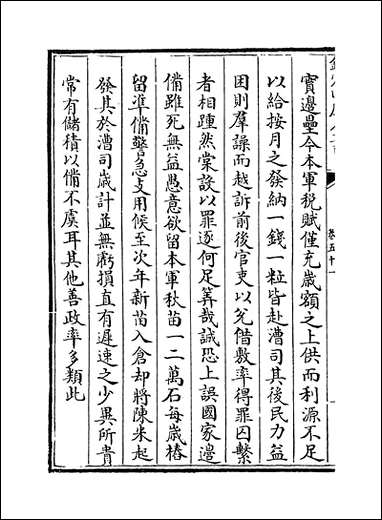 實邊壘今本軍税賦僅充嵗額之上供而利源不足
以給按月之發納一錢一粒皆赴漕司其後民力益
困則羣譟而越訴前後官吏以兊借數率得罪囚繫
者相踵然棠設以罪逐何足筭哉誠恐上誤國家邉
備雖死無益愚意欲留本軍秋苗一二萬石每嵗樁
留凖備警急支用候至次年新苗入倉却將陳米起
發其於漕司嵗計並無虧損直有遲速之少異所貴
常有儲積以備不虞耳其他善政率多類此
卷五十一